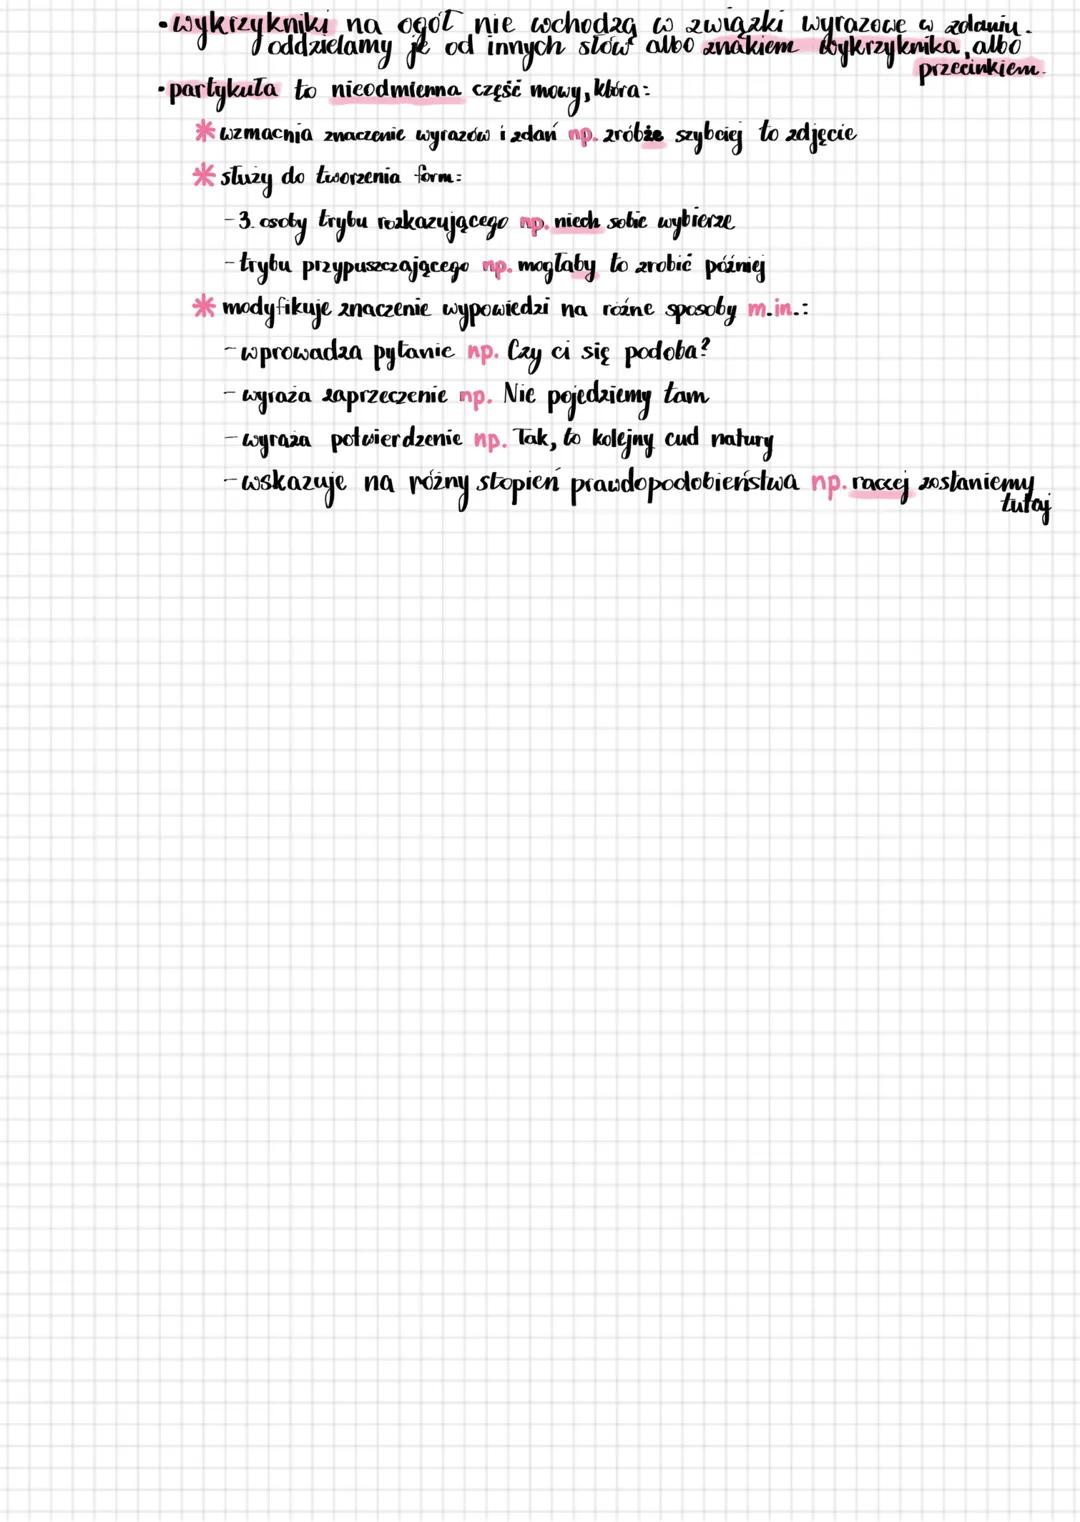 • wykrzykniki na ogół nie wchodzą w związki wyrazowe w zdaniu.
oddzielamy je od innych słów albo znakiem wykrzyknika, albo
przecinkiem.
• partykuła to nieodmienna część mowy, która:
* wzmacnia znaczenie wyrazów i zdań np. zróbże szybciej to zdjęcie
* służy do tworzenia form:
- 3. osoby trybu rozkazującego np. niech sobie wybierze
- trybu przypuszczającego np. mogłaby to zrobić później
* modyfikuje znaczenie wypowiedzi na różne sposoby m.in.:
- wprowadza pytanie np. Czy ci się podoba?
- wyraża zaprzeczenie np. Nie pojedziemy tam
- wyraża potwierdzenie np. Tak, to kolejny cud natury
- wskazuje na różny stopień prawdopodobieństwa np. raczej zostaniemy
tutaj